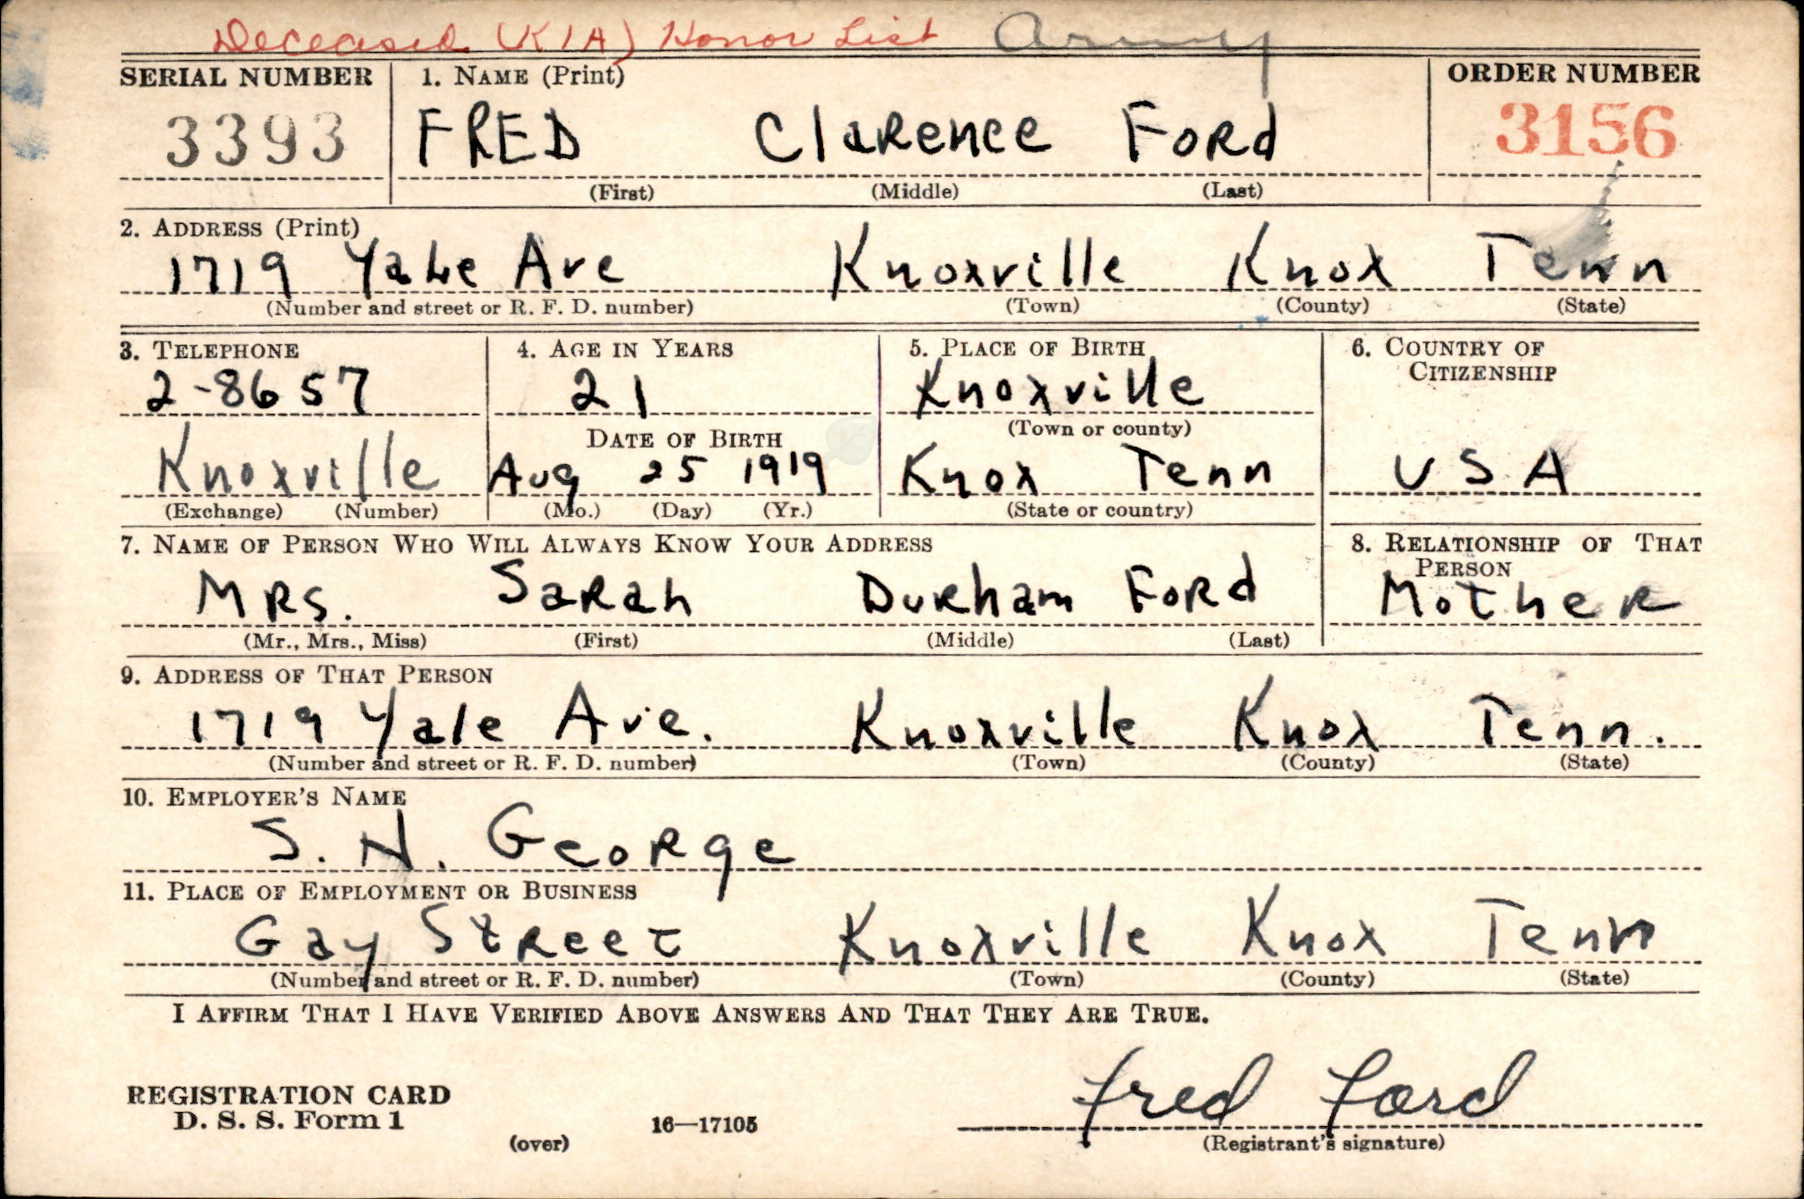 Deceased (KIA) Honor List Army
SERIAL NUMBER 1. NAME (Print) ORDER NUMBER
3393 FRED Clarence Ford 3156
(First) (Middle) (Last)
2. ADDRESS (Print)
1719 Yale Ave Knoxville Knox Tenn
(Number and street or R. F. D. number) (Town) (County) (State)
3. TELEPHONE 4. AGE IN YEARS 5. PLACE OF BIRTH 6. COUNTRY OF
CITIZENSHIP
2-8657 21 Knoxville
(Town or county)
DATE OF BIRTH
Knoxville Aug 25 1919 Knox Tenn USA
(Exchange) (Number) (Mo.) (Day) (Yr.) (State or country)
7. NAME OF PERSON WHO WILL ALWAYS KNOW YOUR ADDRESS 8. RELATIONSHIP OF THAT
PERSON
MRS. Sarah Durham Ford Mother
(Mr., Mrs., Miss) (First) (Middle) (Last)
9. ADDRESS OF THAT PERSON
1719 Yale Ave. Knoxville Knox Tenn.
(Number and street or R. F. D. number) (Town) (County) (State)
10. EMPLOYER'S NAME
S. N. George
11. PLACE OF EMPLOYMENT OR BUSINESS
Gay Street Knoxville Knox Tenn
(Number and street or R. F. D. number) (Town) (County) (State)
I AFFIRM THAT I HAVE VERIFIED ABOVE ANSWERS AND THAT THEY ARE TRUE.
Fred Ford
REGISTRATION CARD
D. S. S. Form 1 16—17105
(over) (Registrant's signature)